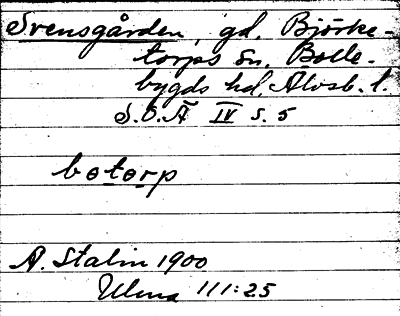 Svensgården, gd. Björke-
torps sn. Bolle-
bygds hd. Älvsb. l.
S.O.Ä IV s. 5
botorp
A. Stalin 1900
Ulma 111:25